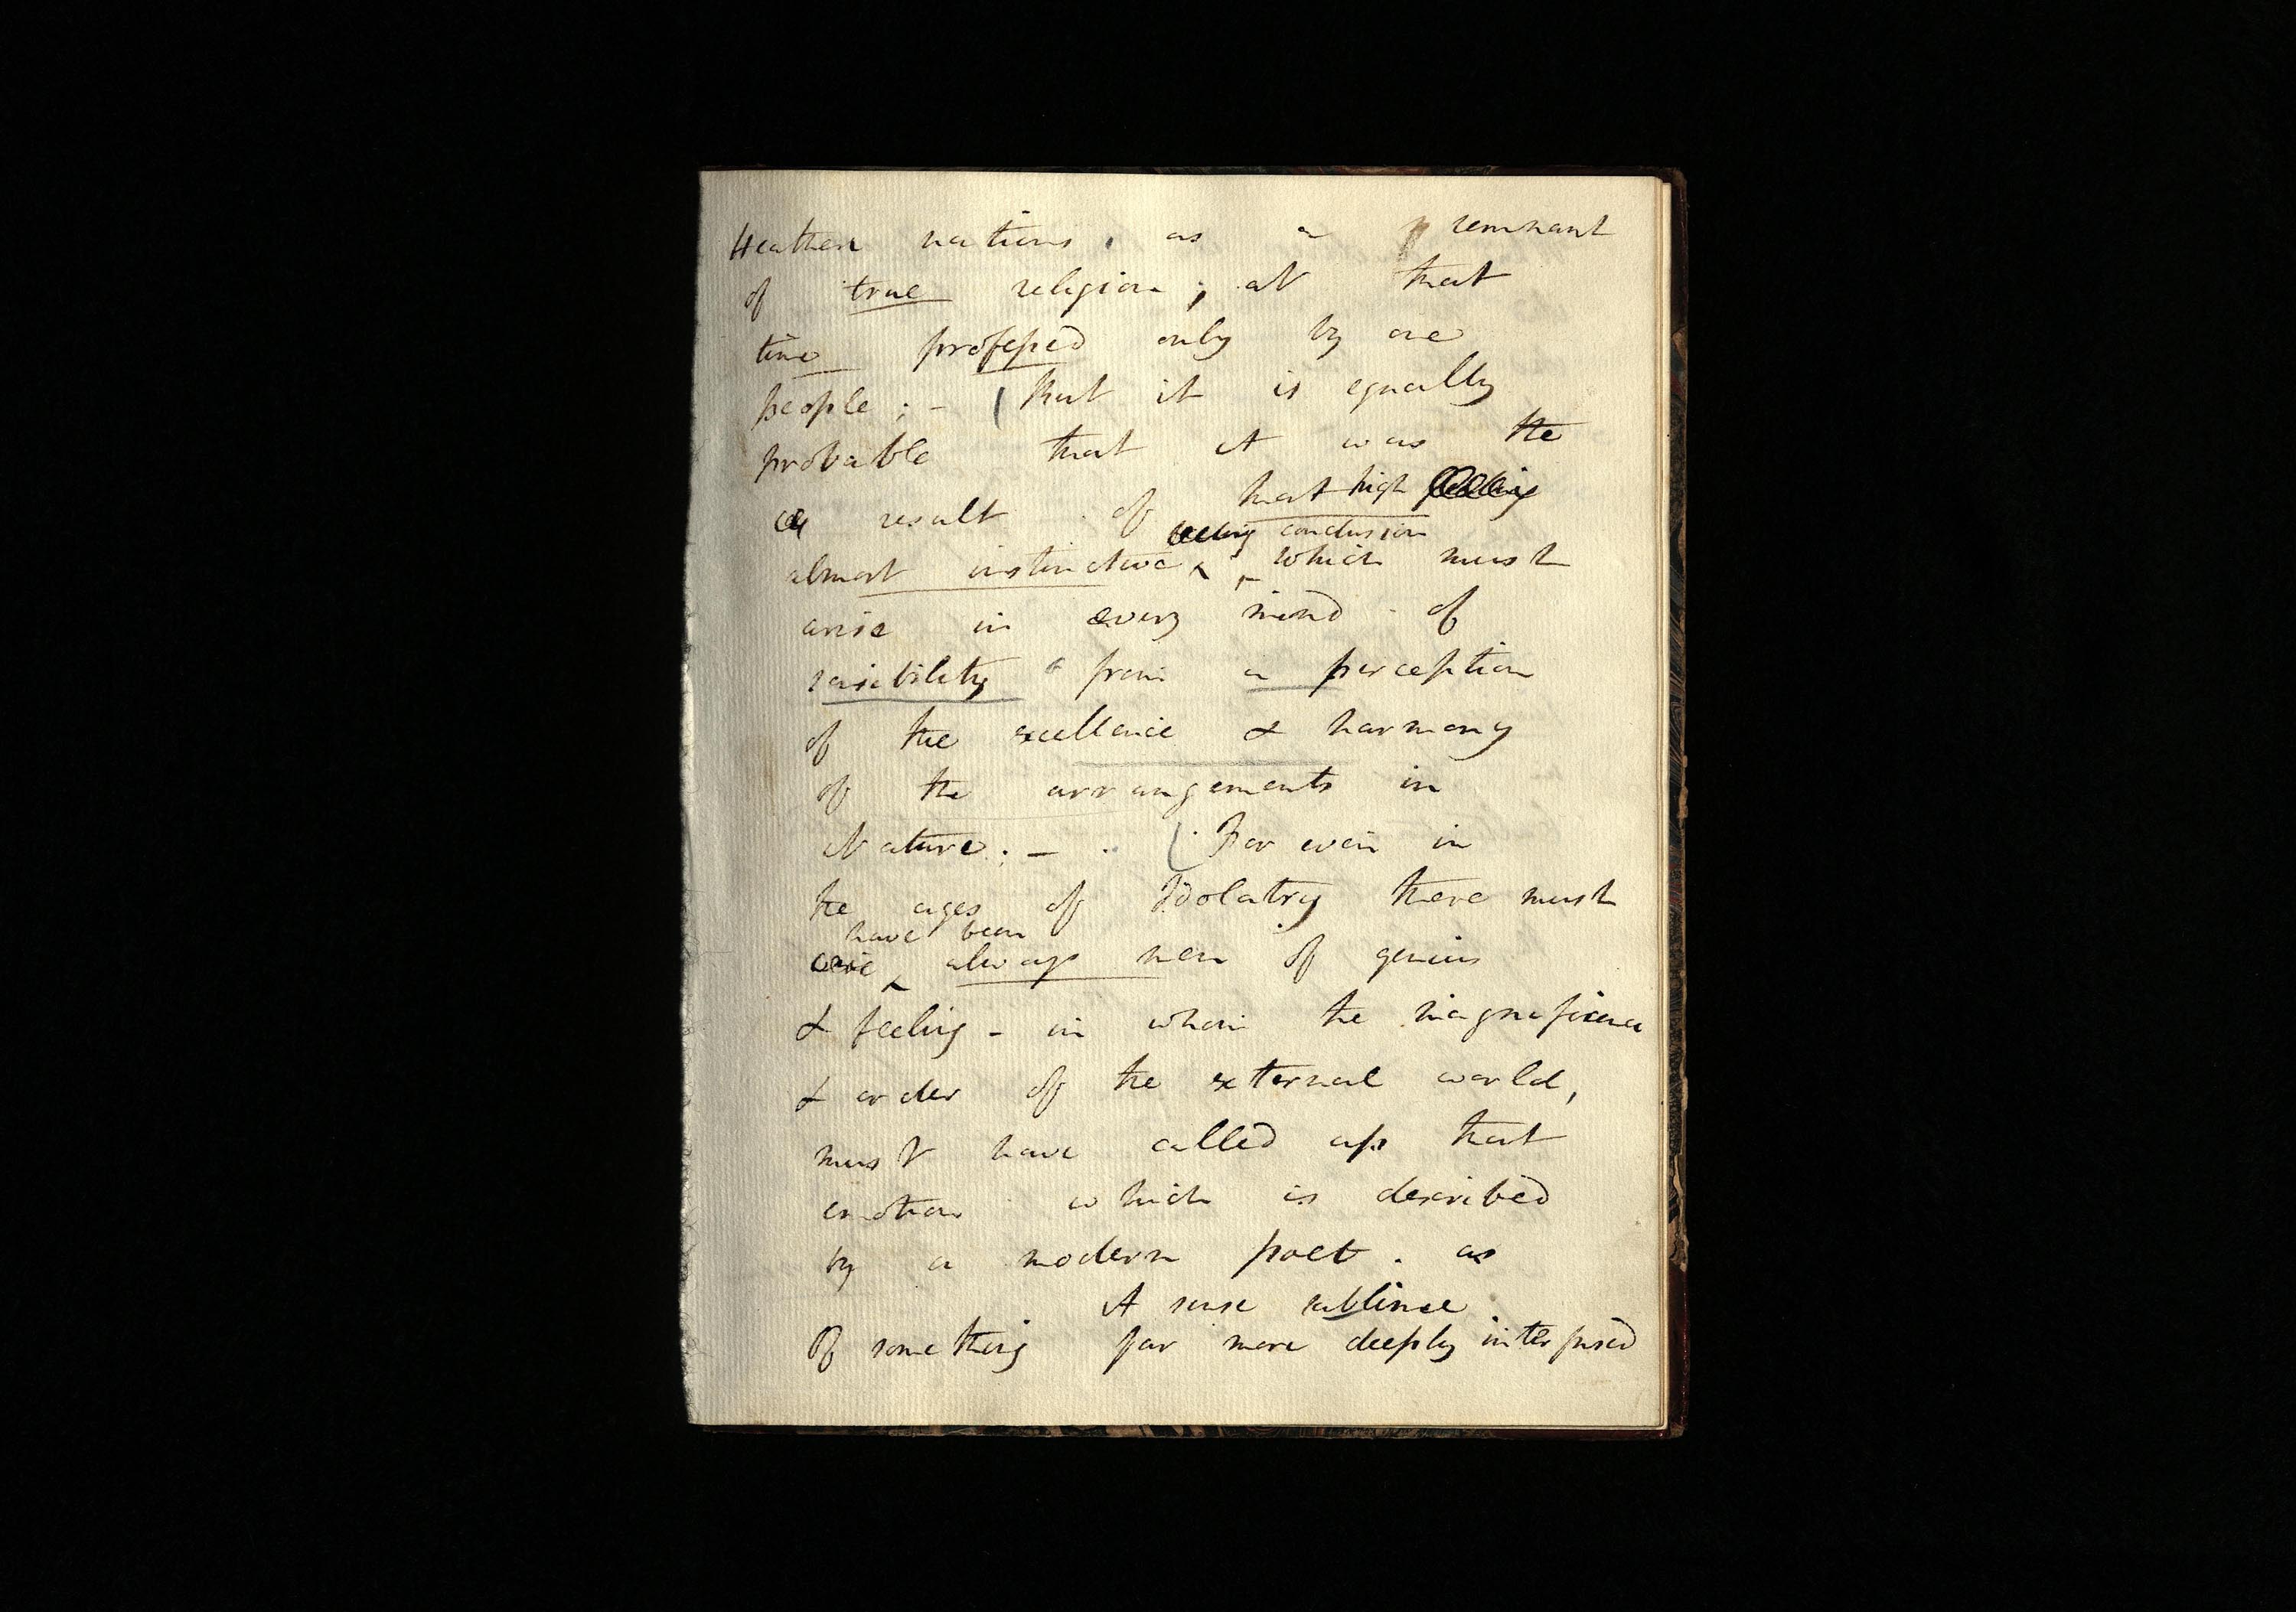 Heathen nations, as a remnant
of true religion; at that
time professed only by one
people; - (but it is equally
probable that it was the
a result of that high feeling
feeling conclusion
almost instinctive, which must
arise in every mind of
sensibility from a perception
of the excellence & harmony
of the arrangements in
Nature: - (For even in
the ages of Idolatry there must
have been
always men of genius
& feeling - in whom the magnificence
& order of the external world,
must have called up that
emotion which is described
by a modern poet. as
A sense sublime
Of something far more deeply interfused